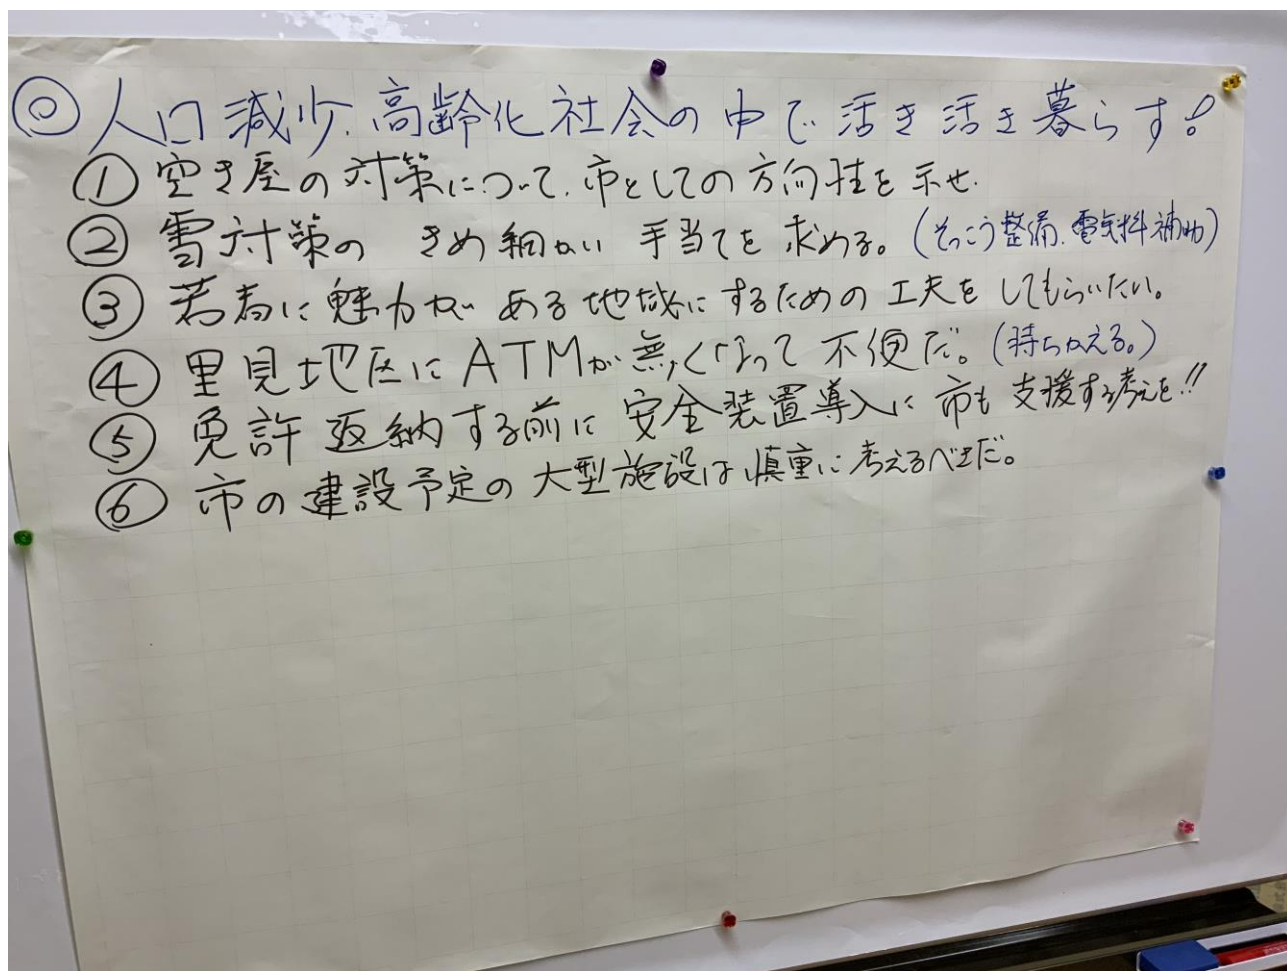 ◎人口減少、高齢化社会の中で活き活き暮らす!
① 空き屋の対策について、市としての方向性を示せ.
② 雪対策の きめ細かい 手当てを求める。(そっこう整備、電気料補助)
③ 若者に魅力がある地域にするための工夫をしてもらいたい。
④ 里見地区にATMが無くなって不便だ。(持ちかえる。)
⑤ 免許返納する前に安全装置導入に市も支援する考えを!!
⑥ 市の建設予定の大型施設は慎重に考えるべきだ。